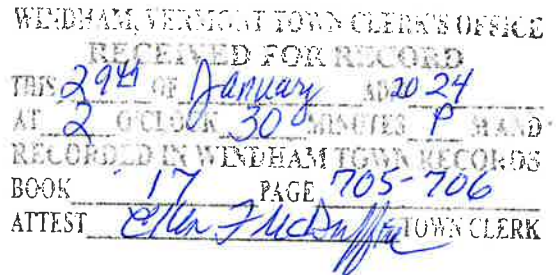 WINDHAM, VERMONT TOWN CLERK'S OFFICE
RECEIVED FOR RECORD
THIS 29th OF January AD 20 24
AT 2 O'CLOCK 30 MINUTES P M AND
RECORDED IN WINDHAM TOWN RECORDS
BOOK 17 PAGE 705-706
ATTEST Ellen F McDuffie TOWN CLERK